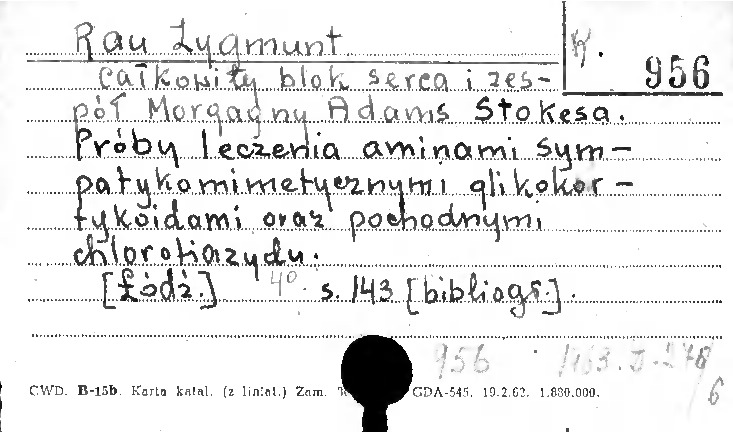 Rau Zygmunt
K. 956
całkowity blok serca i zes-
pół Morgagny Adams Stokesa.
Próby leczenia aminami sym-
patykomimetycznymi glikokor-
tykoidami oraz pochodnymi
chlorotiazydu.
[Łódź.] 4° s. 143 [bibliogr.].
956
6
CWD. B-15b. Karta katal. (z liniat.) Zam. GDA-545. 19.2.62. 1.880.000.